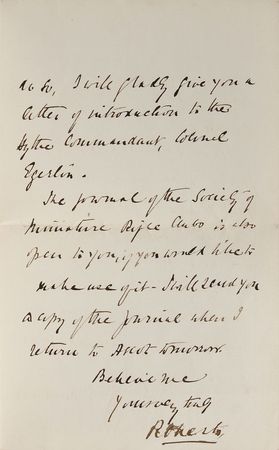 do so, I will gladly give you a
letter of introduction to the
Hythe Commandant, Colonel
Egerton.
The Journal of the Society of
Miniature Rifle Clubs is also
open to you, if you would like to
make use of it - I will send you
a copy of the Journal when I
return to Ascot tomorrow.
Believe me
Yours very truly
Roberts